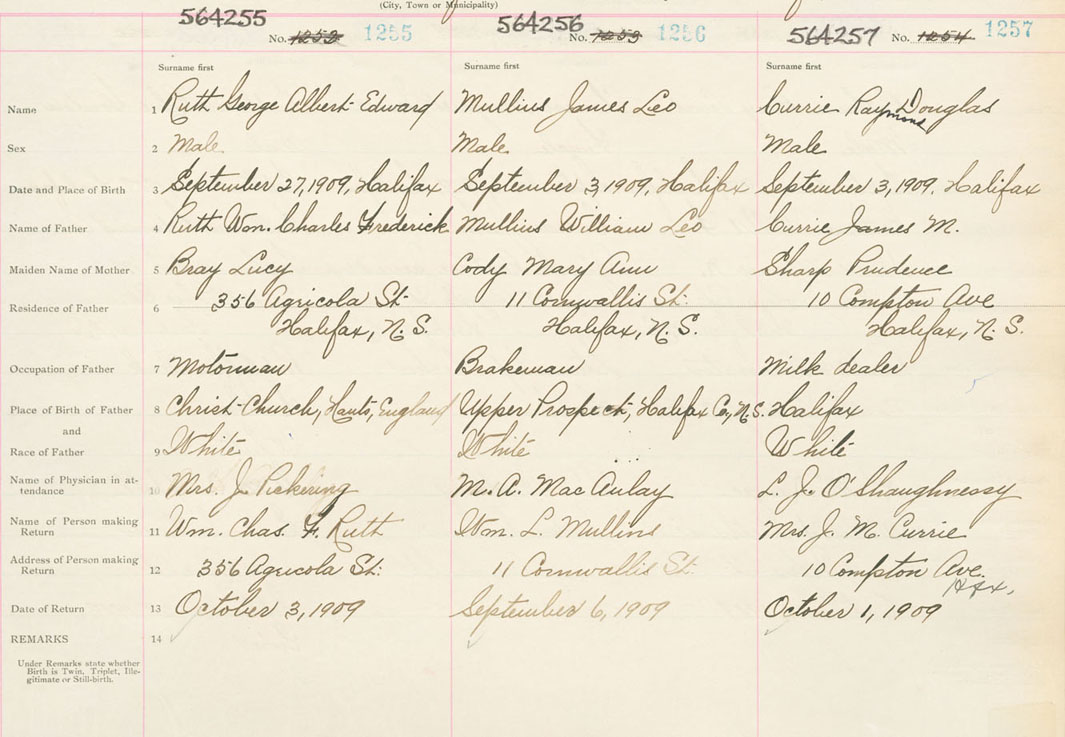 (City, Town or Municipality)
564255 No. 1253 1255 564256 No. 1253 1256 564257 No. 1254 1257
Surname first Surname first Surname first
Name 1 Ruth George Albert Edward Mullins James Leo Currie Raymond Douglas
Sex 2 Male Male Male
Date and Place of Birth 3 September 27, 1909, Halifax September 3, 1909, Halifax September 3, 1909, Halifax
Name of Father 4 Ruth Wm. Charles Frederick Mullins William Leo Currie James M.
Maiden Name of Mother 5 Bray Lucy Cody Mary Ann Sharp Prudence
Residence of Father 6 356 Agricola St. 11 Cornwallis St. 10 Compton Ave
Halifax, N. S. Halifax, N. S. Halifax, N. S.
Occupation of Father 7 Motorman Brakeman Milk dealer
Place of Birth of Father 8 Christ-Church, Hants, England Upper Prospect, Halifax Co, N. S. Halifax
and
Race of Father 9 White White White
Name of Physician in at-
tendance 10 Mrs. J. Pickering M. A. MacAulay L. J. O'Shaughnessy
Name of Person making
Return 11 Wm. Chas. F. Ruth Wm. L. Mullins Mrs. J. M. Currie
Address of Person making
Return 12 356 Agricola St. 11 Cornwallis St. 10 Compton Ave.
Hfx.
Date of Return 13 October 3, 1909 September 6, 1909 October 1, 1909
REMARKS 14
Under Remarks state whether
Birth is Twin, Triplet, Ille-
gitimate or Still-birth.